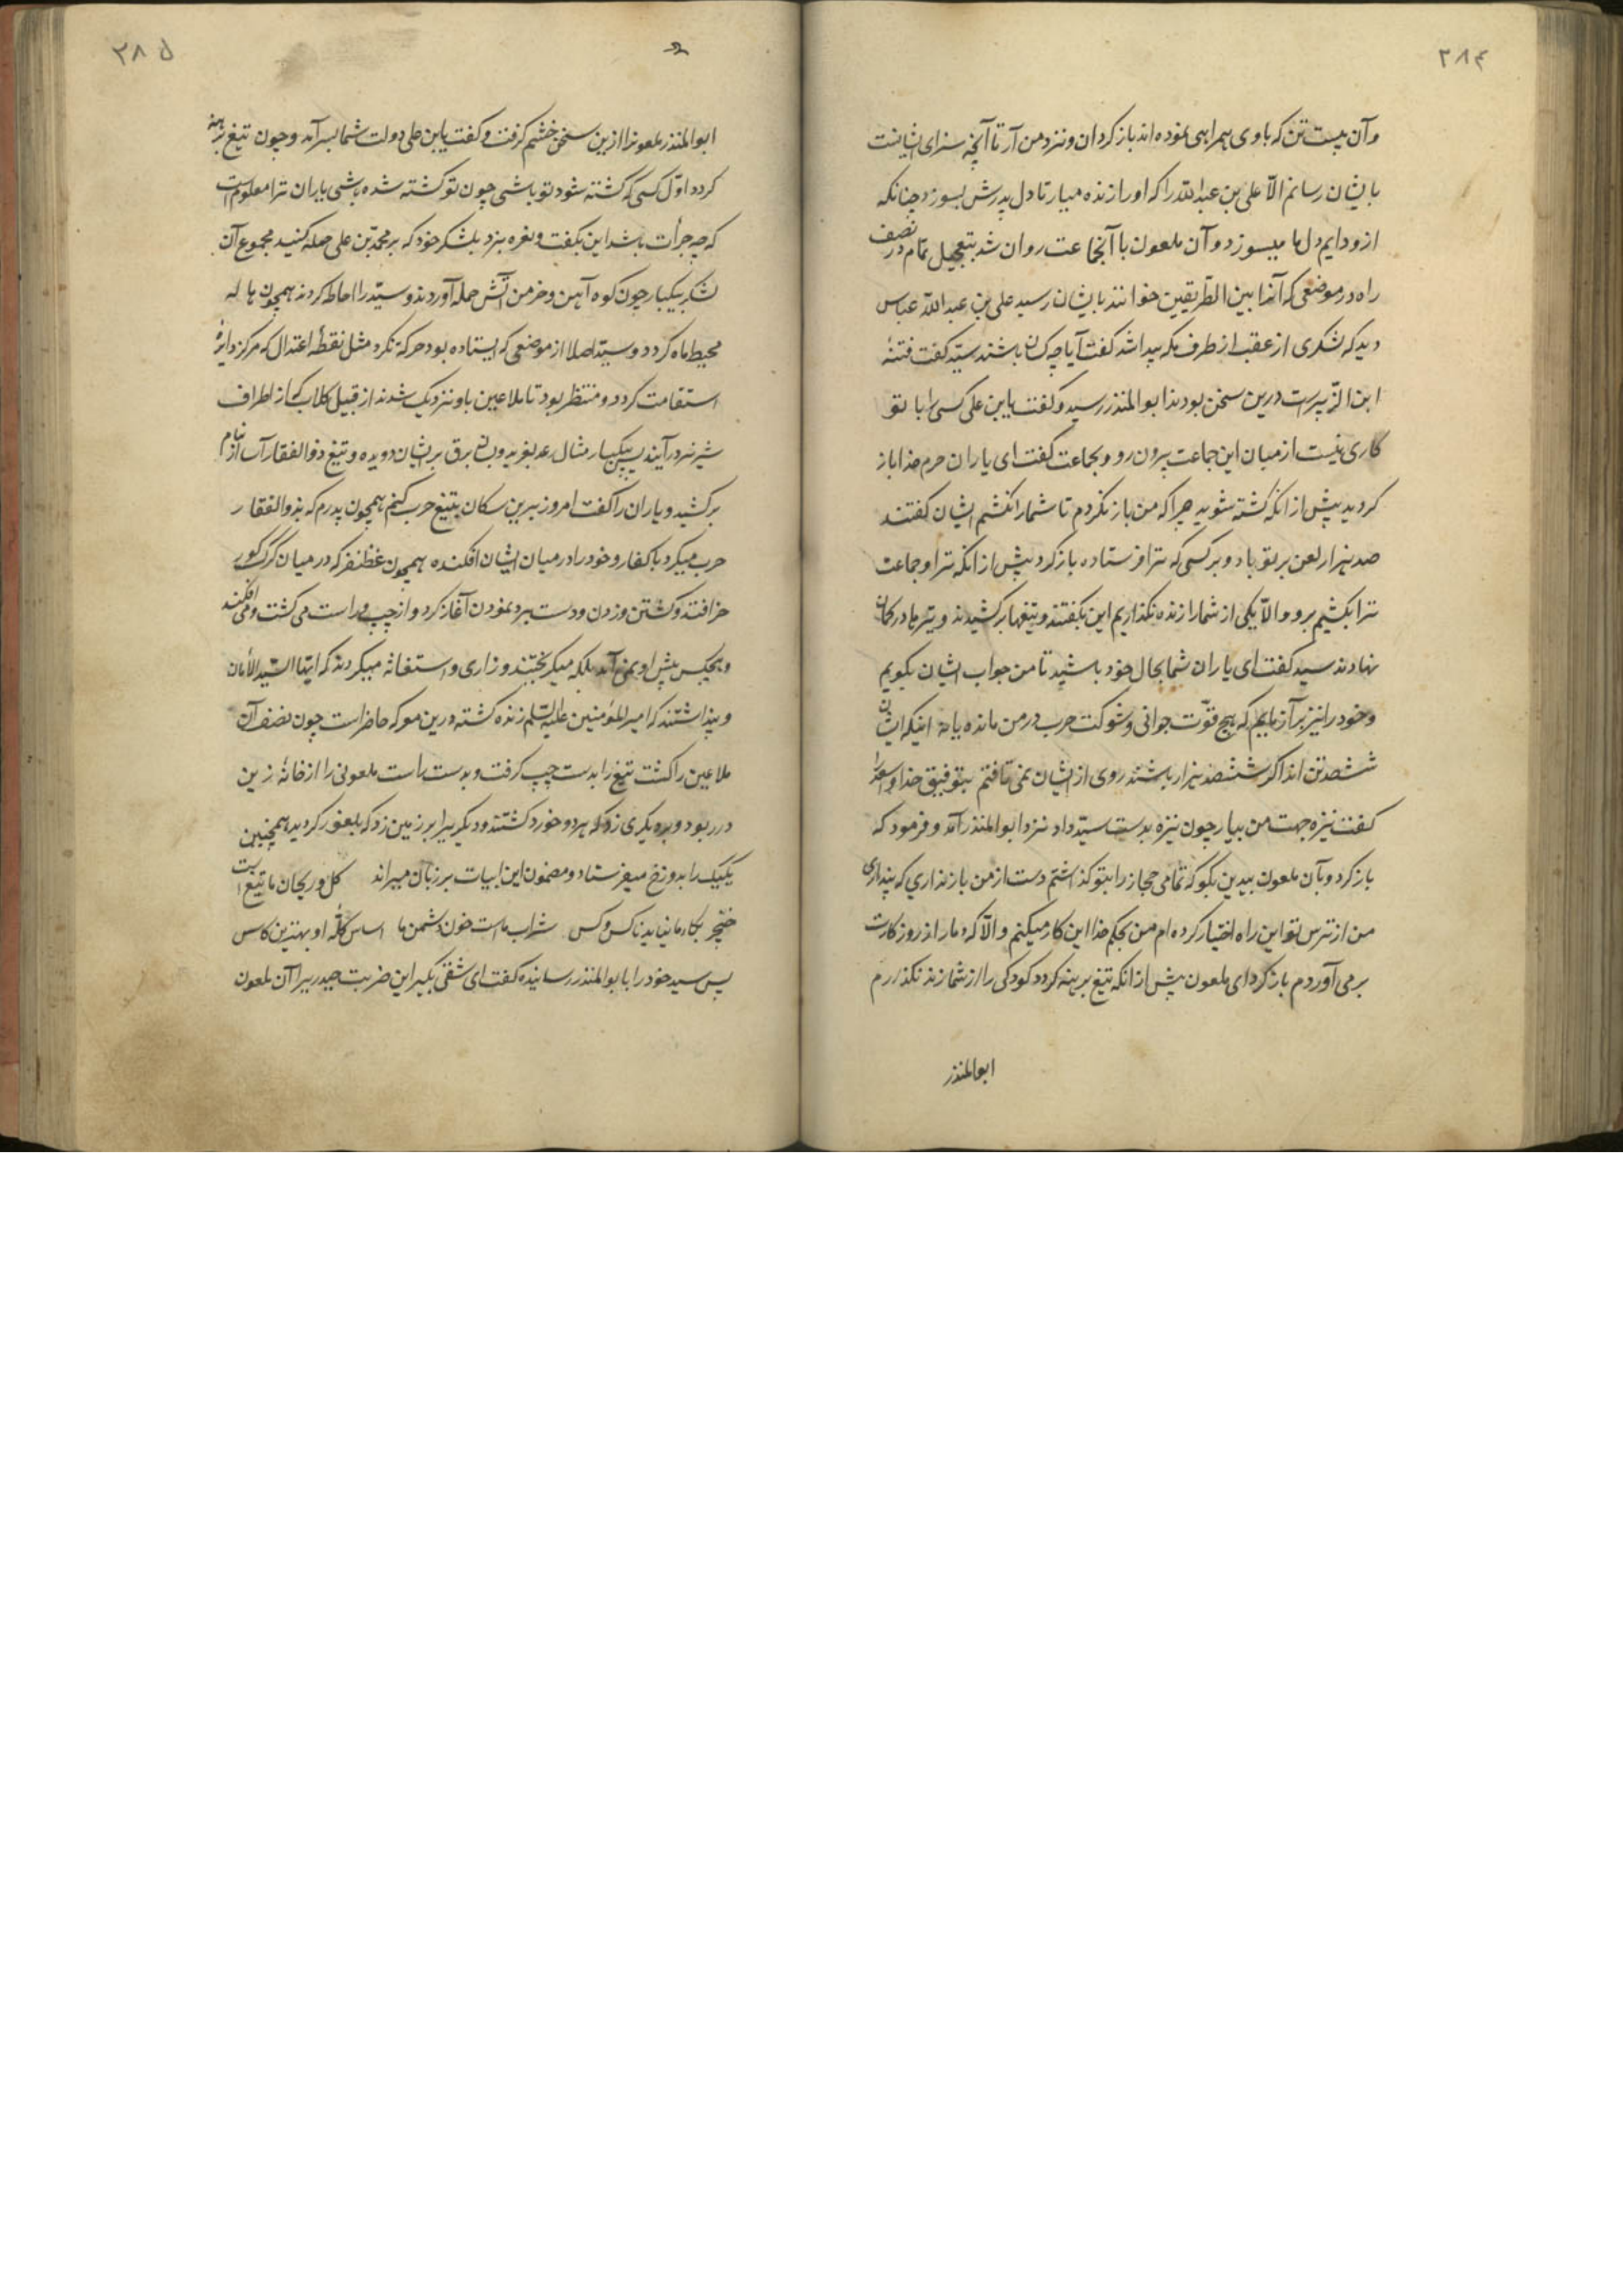 ۲۸۴
و آن بیست تن که با وی همراهی نموده اند باز کردان و نزد من آر تا آنچه سزای ایشانست
بایشان رسانم الّا علی بن عبداللّه را که او را زنده میار تا دل پدرش بسوزد چنانکه
ازو دایم دل ما میسوزد و آن ملعون با آنجماعت روان شد بتعجیل تمام در نصف
راه در موضعی که آنرا بین الطریقین خوانند بایشان رسید علی بن عبداللّه عباس
دید که لشکری از عقب از طرف مکه پیدا شد کفت آیا چه کسان باشند سیّد کفت فتنهٔ
ابن الزّبیرست درین سخن بودند ابوالمنذر رسید و کفت یابن علی کسی را با تو
کاری نیست از میان این جماعت بیرون رو و بجماعت کفت ای یاران حرم خدا باز
کردید پیش از انکه کشته شوید چرا که من باز نکردم تا شما را نکشم ایشان کفتند
صد هزار لعن بر تو باد و بر کسی که ترا فرستاده باز کرد پیش از انکه ترا و جماعت
ترا بکشیم برو و الّا یکی از شما را زنده نکذاریم این بکفتند و تیغها بر کشیدند و تیرها در کمان
نهادند سید کفت ای یاران شما بحال خود باشید تا من جواب ایشان بکویم
و خود را نیز بر آزمایم که هیچ قوّت جوانی و شوکت حرب در من مانده یا نه اینکه ایشان
ششصد تن اند اکر ششصد هزار باشند روی از ایشان نمی تافتم بتوفیق خدا و
کفت نیزه جهت من بیار چون نیزه بدست سیّد داد نزد ابوالمنذر آمد و فرمود که
باز کرد و بآن ملعون بیدین بکو که تمامی حجاز را بتو کذاشتم دست از من باز نداری که پنداری
من از ترس تو این راه اختیار کرده ام من بحکم خدا این کار میکنم و الّا که دمار از روزکارت
بر می آوردم باز کرد ای ملعون پیش از انکه تیغ برهنه کردد کودکی را از شما زنده نکذارم
ابوالمنذر
۲۸۵
ابوالمنذر ملعونرا ازین سخن خشم کرفت و کفت یابن علی دولت شما بسر آمد و چون تیغ برهنه
کردد اوّل کسی که کشته شود تو باشی چون تو کشته شده باشی یاران ترا معلوم است
که چه جرأت باشد این بکفت و نعره بزد بلشکر خود که بر محمّد بن علی حمله کنید مجموع آن
لشکر بیکبار چون کوه آهن و خرمن آتش حمله آوردند و سیّد را احاطه کردند همچون هاله
محیط ماه کردد و سیّد اصلا از موضعی که ایستاده بود حرکة نکرد مثل نقطهٔ اعتدال که مرکز دایرهٔ
استقامت کردد و منتظر بود تا ملاعین باو نزدیک شدند از قبیل کلاب که از اطراف
شیر نر در آیند پس بیکبار مثال رعد بغرید و بسان برق بر ایشان دویده و تیغ ذوالفقار آسا از نیام
بر کشید و یاران را کفت امروز بر این سکان بتیغ حرب کنم همچون پدرم که بذوالفقار
حرب میکرد با کفار و خود را در میان ایشان افکنده همچون غظنفر که در میان کله کور
خر افتد و کشتن و زدن و دست برد نمودن آغاز کرد و از چپ و راست می کشت و می افکند
و هیچکس پیش او نمی آمد بلکه میکریختند و زاری و استغاثه میکردند که ایّها السّید الأمان
و پنداشتند که امیرالمؤمنین علیه السّلم زنده کشته درین معرکه حاضر است چون نصف آن
ملاعین را کشت تیغ را بدست چپ کرفت و بدست راست ملعونی را از خانهٔ زین
در ربود و بدیکری زد که هر دو خورد کشتند و دیکریرا بر زمین زد که بلغور کردید همچنین
یکیک را بدوزخ میفرستاد و مضمون این ابیات بر زبان میراند کل و ریحان ما تیغ است
خنجر بکار ما نیاید ناکس و کس شراب ماست خون دشمن ما اساس کلهٔ او بهترین کاس
پس سید خود را بابوالمنذر رسانیده کفت ای شقی بکیر این ضربت حیدریرا آن ملعون